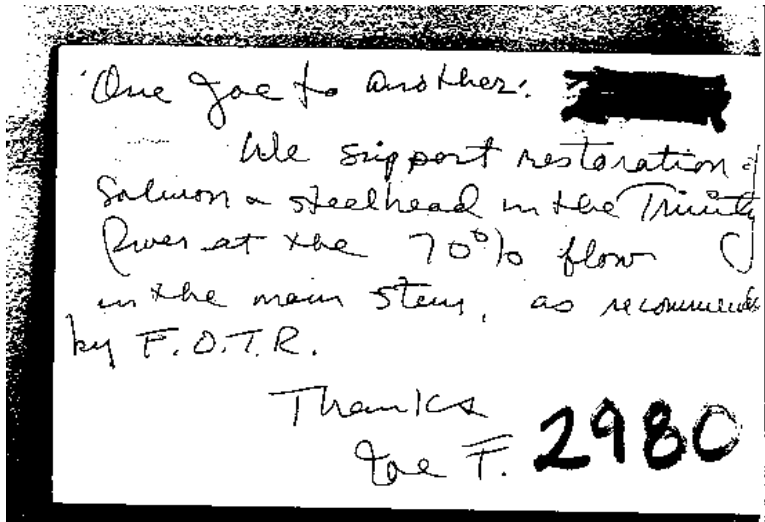 One Joe to another:
We support restoration of
Salmon & steelhead in the Trinity
River at the 70% flow
in the main stem, as recommended
by F.O.T.R.
Thanks
Joe F.
2980